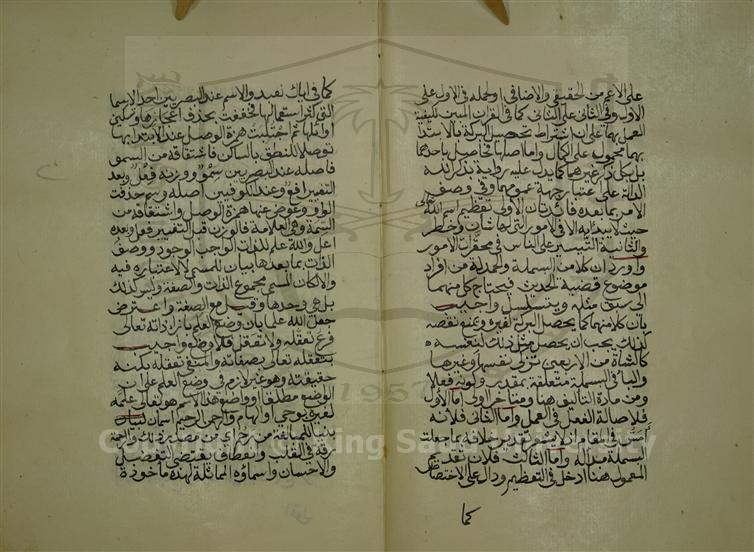 على الاعم من الحقيقي والاضافي او الجملة في الاول على
الاول وفي الثاني على الثاني كما في القرآن المبين لكيفية
العمل بهما على ان اشتراط تحصيل البركة فالابتدا
بهما محمول على الكمال واما اصلها فحاصل باحدهما
بل بكل ذكر غيرهما كما يدل عليه رواية بذكر الله
الدالة على اعتبار جهة عمومهما وفي وصف
الامر بما بعده فائدتان الاولى تعظيم اسم الله تعالى
حيث لا يبتدأ به الا في الامور التي لها شان وخطر
والثانية التيسير على الناس في محقرات الامور
واورد ان كلا من البسملة والحمدلة من افراد
موضوع قضية الحديث فيحتاج كل منهما
الى سبق مثله ويتسلسل واجيب
بان كلا منهما كما يحصل البركة لغيره ويمنع نقصه
كذلك يجب ان يحصل مثل ذلك لنفسه
كالشاة من الاربعين تزكي نفسها وغيرها
والبا في البسملة متعلقة بمقدر وكونه فعلا
ومن مادة التاليف هنا ومتاخرا اولى اما الاول
فلاصالة الفعل في العمل واما الثاني فلانه
امس في المقام اذ لا يشعر المقدر حينئذ بما جعلت
البسملة مبدأ له واما الثالث فلان تقديم
المعمول هنا ادخل في التعظيم ودال على الاختصاص
كما
كما في اياك نعبد والاسم عند البصريين احد الاسما
التي كثر استعمالها فخففت بحذف اعجازها وسكنت
اوائلها ثم اجتلبت همزة الوصل عند الابتدا بها
توصلا للنطق بالساكن فاشتقاقه من السمو
فاصله عند البصريين سمو ووزنه فعل وبعد
التغيير افع وعند الكوفيين اصله وسم حذفت
الواو وعوض عنها همزة الوصل واشتقاقه من
السمة وهي العلامة فالوزن قبل التغيير فعل وبعده
اعل والله علم للذات الواجب الوجود ووصف
الذات بما بعدها بيان للمسمى لا لاعتباره فيه
والا لكان المسمى مجموع الذات والصفة وليس كذلك
بل هي وحدها وقيل مع الصفة واعترض
جعل الله علما بان وضع العلم بازا ذاته تعالى
فرع تعقله ولا تعقل فلا وضع واجيب
بتعقله تعالى بصفاته والمنتفي تعقله بكنه
حقيقته وهو غير لازم في وضع العلم على ان
الوضع مطلقا او واضع هذا الاسم هو تعالى علمه
لغيره بوحي او الهام والرحمن الرحيم اسمان
بنيا للمبالغة من رحم اي من مصدر ذلك والرحمة
رقة في القلب وانعطاف يقتضي التفضل
والاحسان واسماؤه المماثلة لهذه ماخوذة